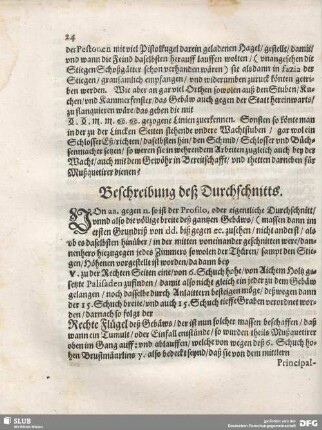 24
der Pestonen mit viel Pistolkugel darein geladenen Hagel / gestelle / damit /
vnd wann die Feind daselbsten herauff lauffen wolten / ( vnangesehen die
Stiegen Schoßgätter schon verhanden wären ) sie als dann in fazia der
Stiegen / grausamlich empfangen / vnd widerumben zuruck könten getri-
ben werden. Wie aber an gar viel Orthen sowolen auß den Stuben / Ku-
chen / vnd Kammerfenster / das Gebäw auch gegen der Statt hereinwarts /
zu flanquiren wäre / das geben die mit
gezogene Linien zuerkennen. Sonsten so könte man
in der zu der Lincken Seiten stehende vndere Wachtstuben / gar wol ein
Schlosser Eßrichten / daselbsten hin / den Schmid / Schlosser vnd Büch-
senmacher setzen / so weren sie in wehrendem Arbeiten zugleich auch bey der
Wacht / auch mit dem Gewöhr in Bereitschafft / vnd thetten darneben für
Mußquetirer dienen:
Beschreibung deß Durchschnitts.
VOn aa. gegen n. so ist der Profilo, oder eigentliche Durchschnitt /
vnnd also die völlige breite deß gantzen Gebäws / ( massen dann im
ersten Grundriß von dd. biß gegen ee. zusehen / nicht anderst / als
ob es daselbsten hinüber / in der mitten voneinander geschnitten were / dan-
nenhero hiezugegen jedes Zimmers sowolen der Thüren / sampt den Stie-
gen / Höhenen vorgestelt ist worden / da dann bey
V. zu der Rechten Seiten eine / von 6. Schuch hohe / von Aichem Holtz ge-
setzte Palisaden zufinden / damit also nicht gleich ein jeder zu dem Gebäw
gelangen / noch dasselbe durch Anlaittern besteigen möge / deßwegen dann
der 15. Schuch breite / vnd auch 15. Schuch tieffe Graben verordnet wor-
den / darnach so folgt der
Rechte Flügel deß Gebäws / der ist nun solcher massen beschaffen / daß
wann ein Tumult / oder Einfall entstände / so wurden theils Mußquetirer
oben im Gang auff: vnd ablauffen / welche von wegen deß 6. Schuch
hohen Brustmäurlins y. also bedeckt seyend / daß sie von dem mittlern
Principal-
SLUB
Wir führen Wissen.
gefördert von der
Deutschen Forschungsgemeinschaft
DFG